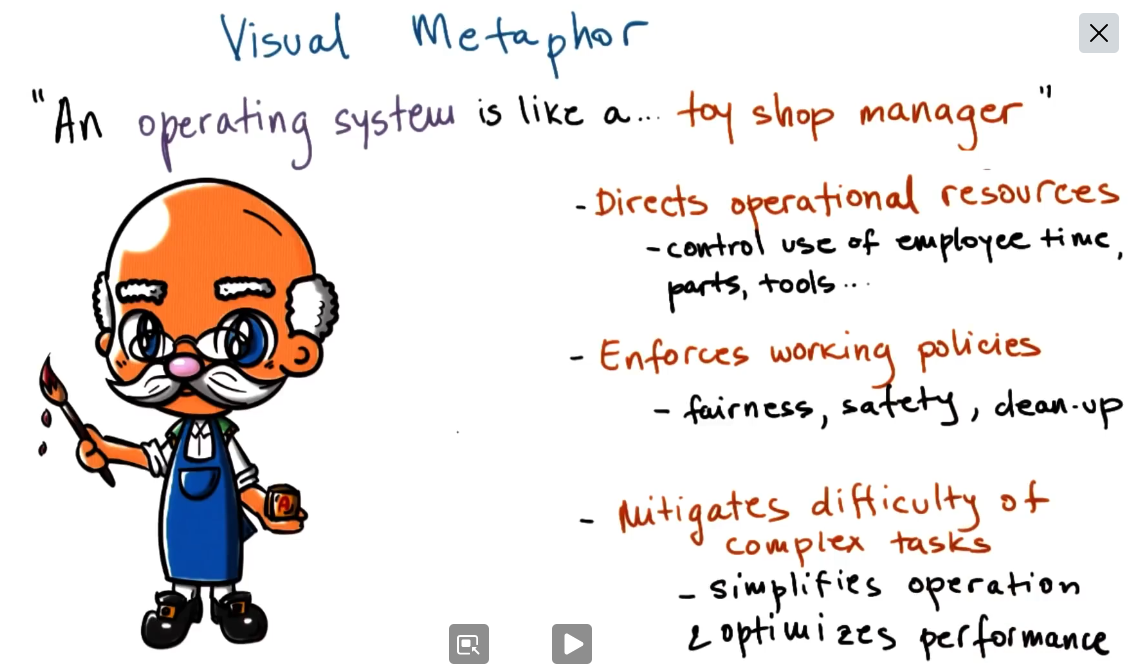 Visual Metaphor
"An operating system is like a... toy shop manager"
- Directs operational resources
- control use of employee time,
parts, tools...
- Enforces working policies
- fairness, safety, clean-up
- Mitigates difficulty of
complex tasks
- simplifies operation
& optimizes performance
A